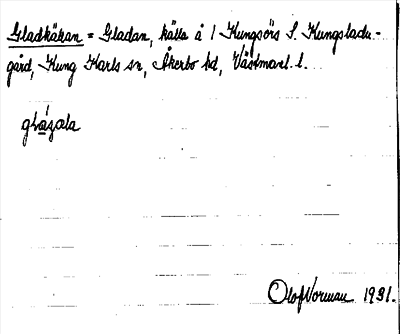 Gladkällan = Gladan, källa å 1 Kungsörs S. Kungsladu-
gård, Kung Karls sn, Åkerbo hd, Västmanl. l.
Olof Norman 1931.